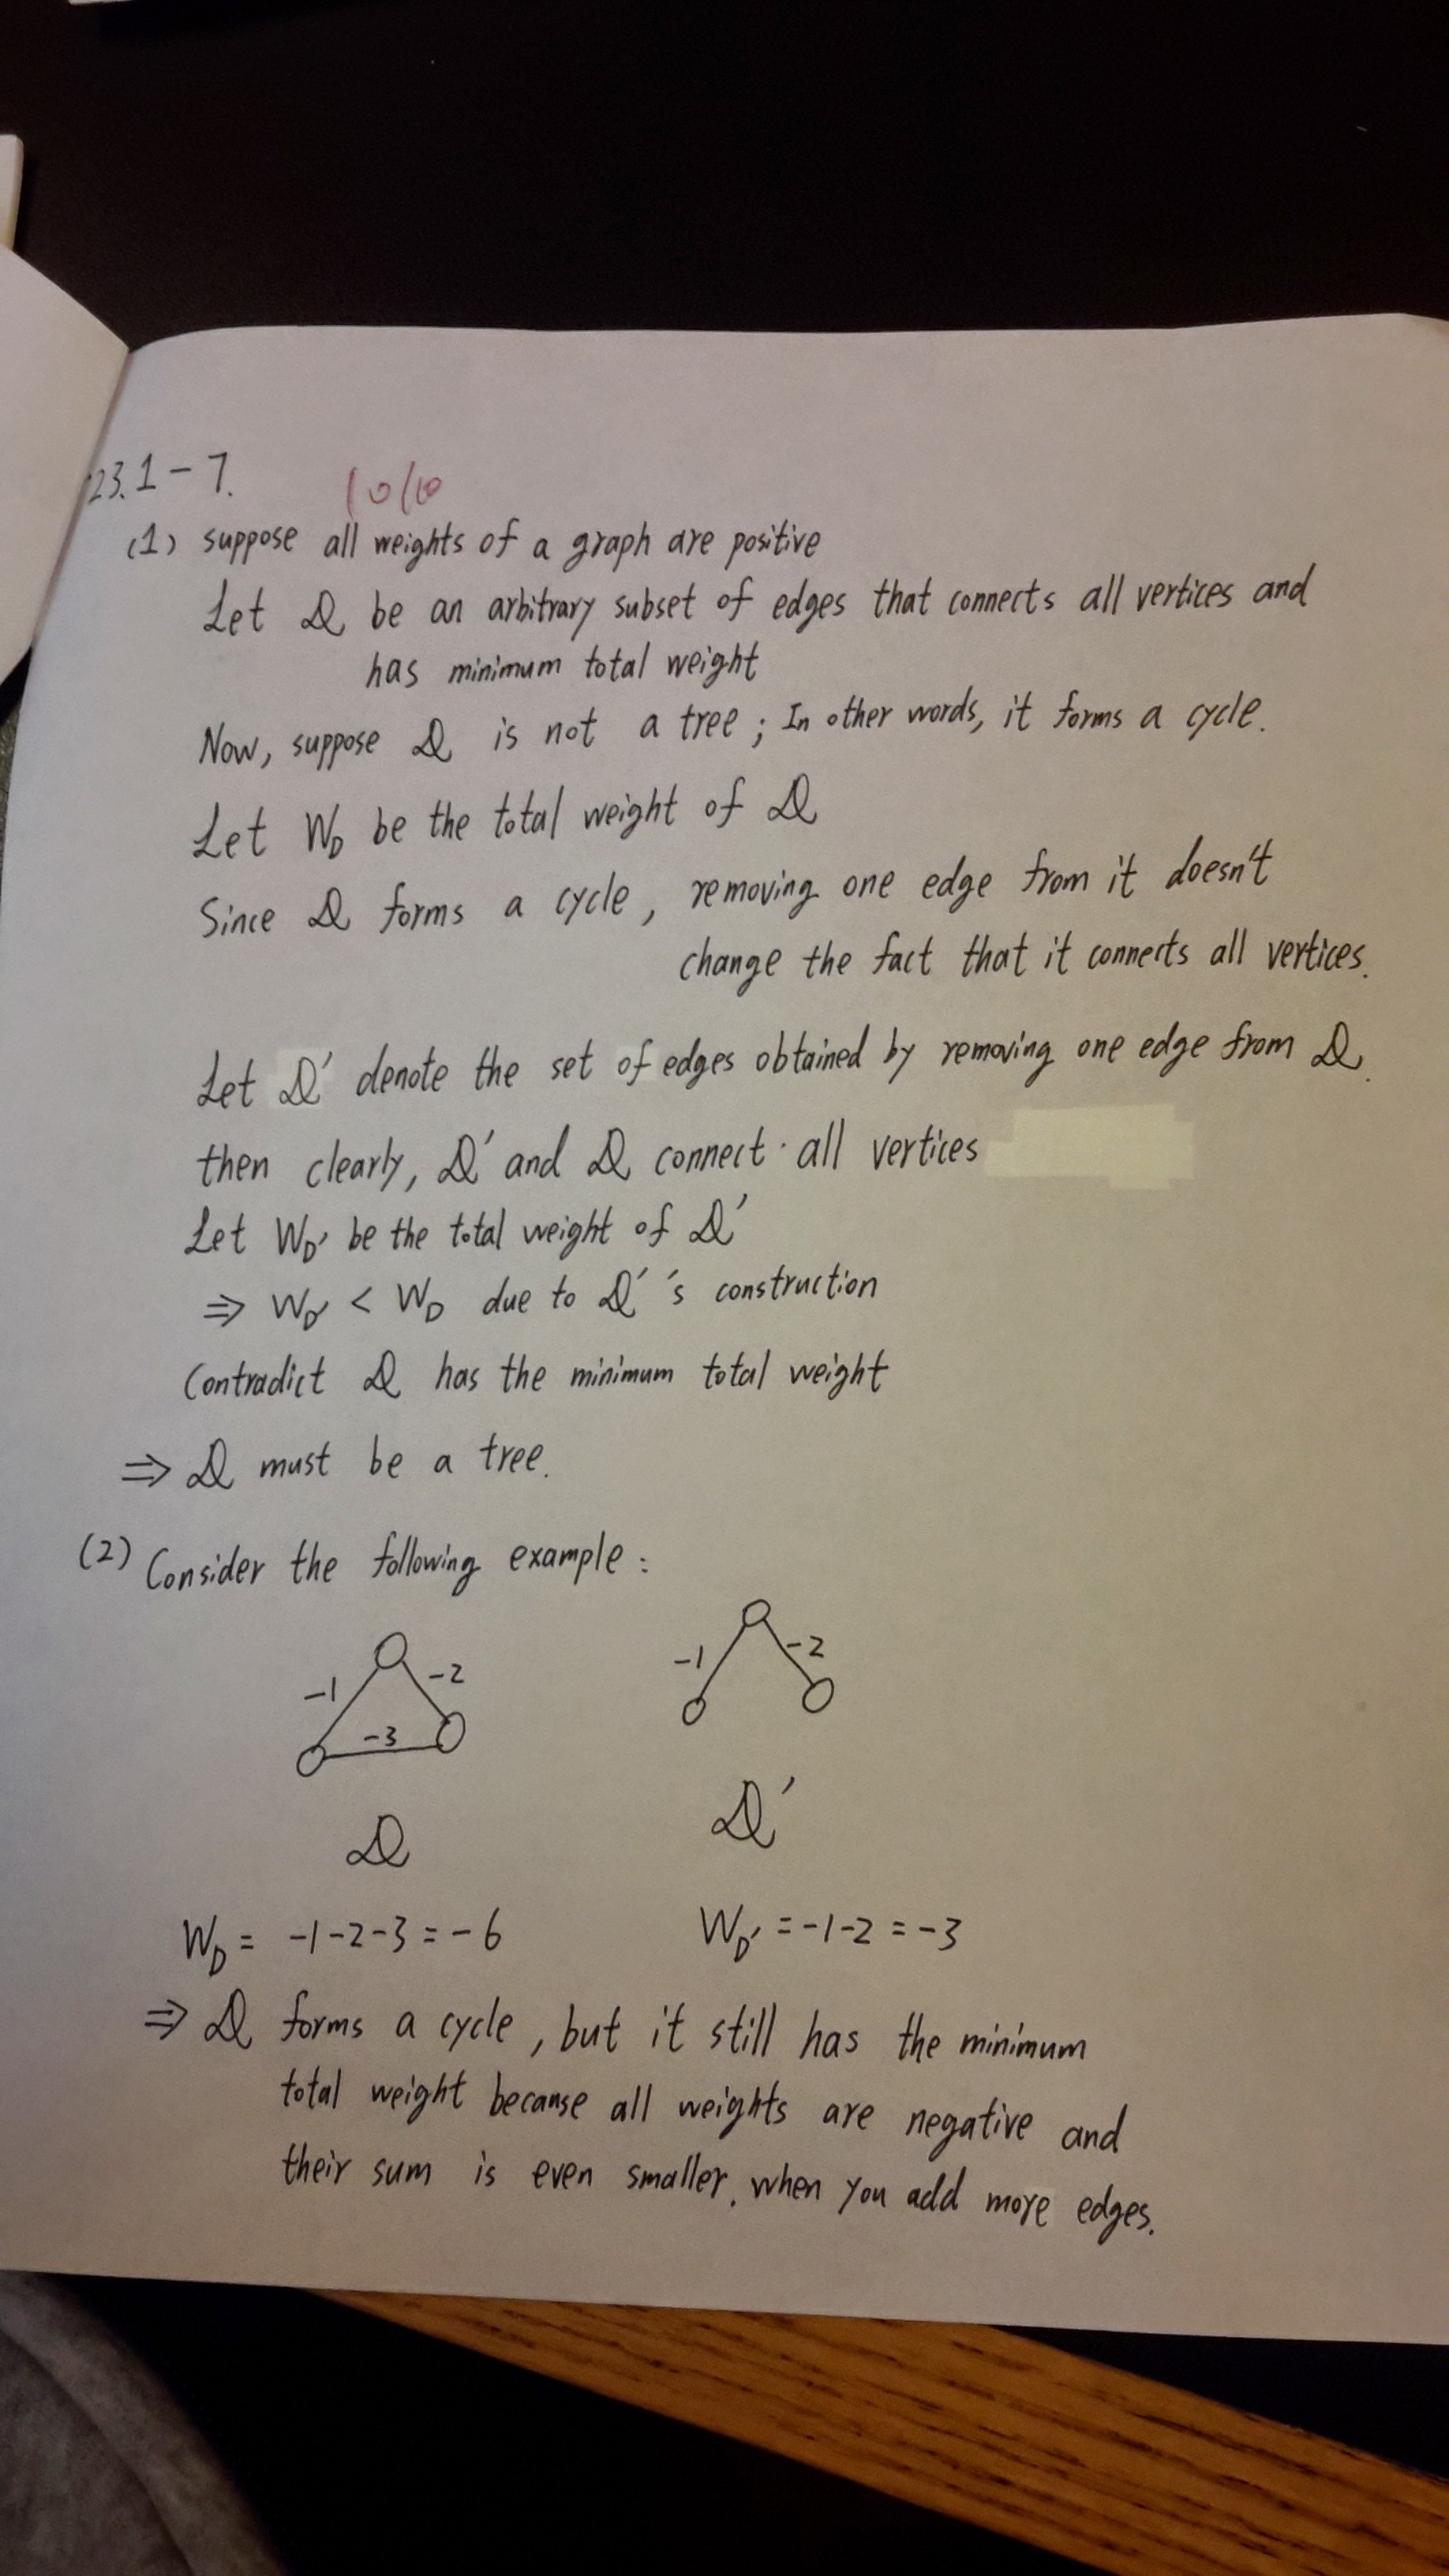 23.1-7.
10/10
(1) suppose all weights of a graph are positive
Let D be an arbitrary subset of edges that connects all vertices and
has minimum total weight
Now, suppose D is not a tree; In other words, it forms a cycle.
Let W_D be the total weight of D
Since D forms a cycle, removing one edge from it doesn't
change the fact that it connects all vertices.
Let D' denote the set of edges obtained by removing one edge from D.
then clearly, D' and D connect all vertices
Let W_D' be the total weight of D'
⇒ W_D' < W_D due to D''s construction
Contradict D has the minimum total weight
⇒ D must be a tree.
(2) Consider the following example:
-1 -2 -1 -2
-3
D D'
W_D = -1-2-3 = -6 W_D' = -1-2 = -3
⇒ D forms a cycle, but it still has the minimum
total weight because all weights are negative and
their sum is even smaller. when you add more edges.